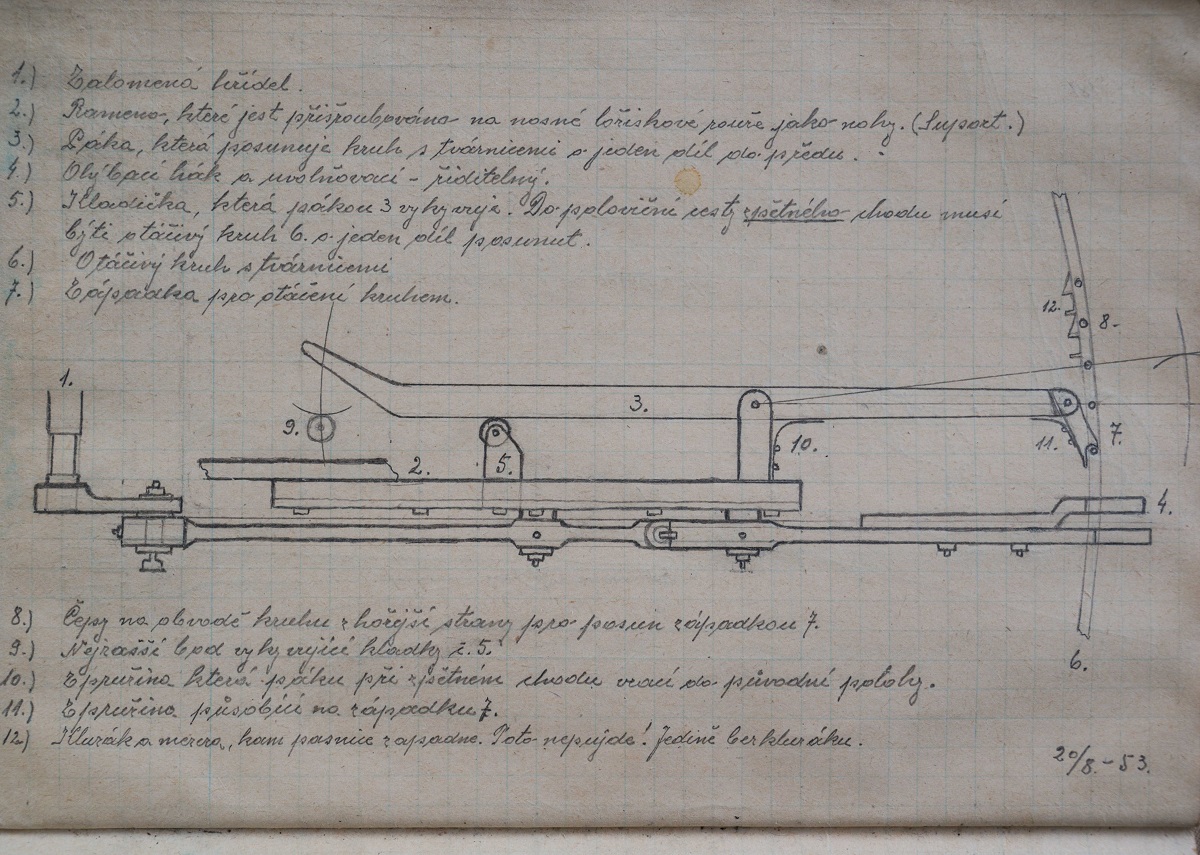 1.) Zalomená hřídel.
2.) Rameno, které jest přišroubováno na nosné ložiskové jako nohy. (Suport.)
3.) Páka, která posunuje kruh s tvárnicemi o jeden díl do předu.
4.) Ohýbací hák a uvolňovací - řiditelný.
5.) Kladička, která pákou 3 vykyvuje. Do poloviční cesty zpětného chodu musí
býti otáčivý kruh 6. o jeden díl posunut.
6.) Otáčivý kruh s tvárnicemi
7.) Západka pro otáčení kruhem.
1.
2.
3.
4.
5.
7.
8.
9.
10.
11.
12.
6.
8.) Čepy na obvodě kruhu z hořejší strany pro posun západkou 7.
9.) Nejzašší bod vykyvující kladky č. 5.
10.) Zpružina která páku při zpětném chodu vrací do původní polohy.
11.) Zpružina působící na západku 7.
12.) Kluzák a mezera, kam zapadne. Toto nepujde! Jedině bez kluzáku.
20/8.-53.